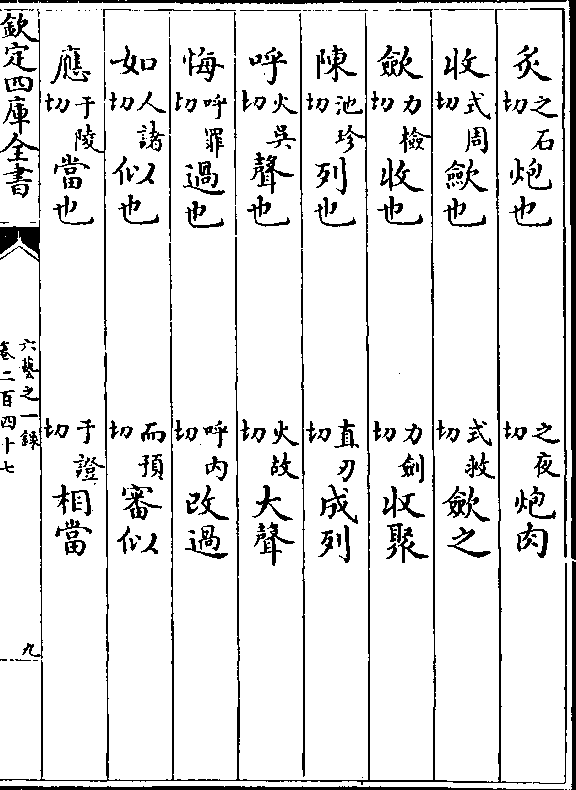 炙之石切炮也 之夜切炮肉
收式周切歛也 式救切歛之
歛力檢切收也 力劍切收聚
陳池珍切列也 直刃切成列
呼火吳切聲也 火故切大聲
悔呼罪切過也 呼内切改過
如人諸切似也 而預切審似
應于陵切當也 于證切相當
欽定四庫全書 六藝之一録 卷二百四十七 九